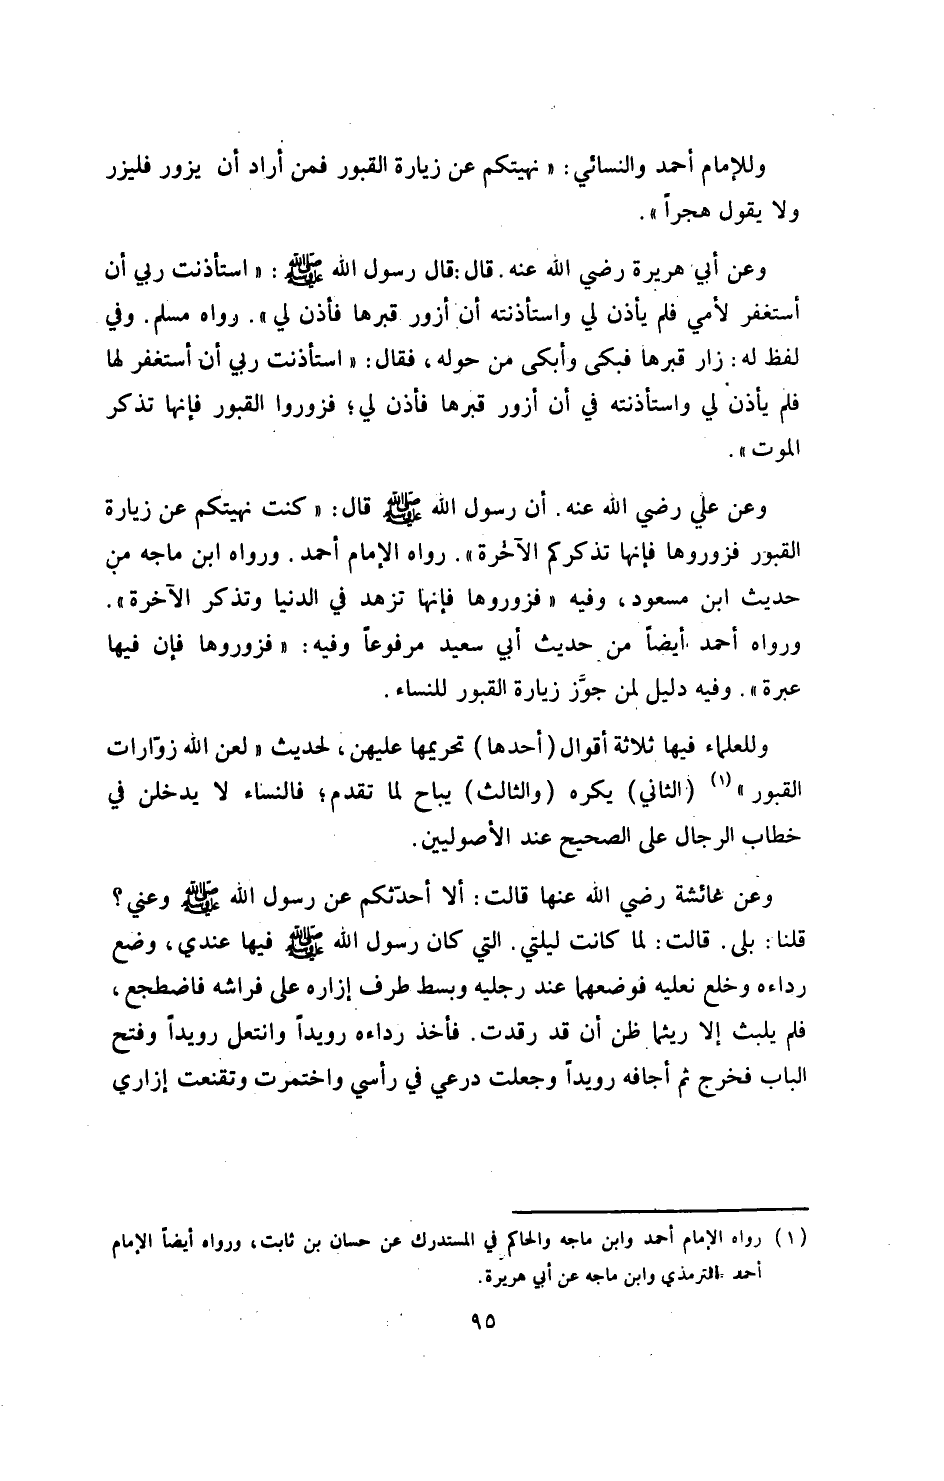 وللإمام أحمد والنسائي: « نهيتكم عن زيارة القبور فمن أراد أن يزور فليزر
ولا يقول هجراً ».
وعن أبي هريرة رضي الله عنه. قال: قال رسول الله ﷺ : « استأذنت ربي أن
أستغفر لأمي فلم يأذن لي واستأذنته أن أزور قبرها فأذن لي ». رواه مسلم. وفي
لفظ له: زار قبرها فبكى وأبكى من حوله، فقال: « استأذنت ربي أن أستغفر لها
فلم يأذن لي واستأذنته في أن أزور قبرها فأذن لي؛ فزوروا القبور فإنها تذكر
الموت ».
وعن علي رضي الله عنه. أن رسول الله ﷺ قال: « كنت نهيتكم عن زيارة
القبور فزوروها فإنها تذكركم الآخرة ». رواه الإمام أحمد. ورواه ابن ماجه من
حديث ابن مسعود، وفيه « فزوروها فإنها تزهد في الدنيا وتذكر الآخرة ».
ورواه أحمد أيضاً من حديث أبي سعيد مرفوعاً وفيه: « فزوروها فإن فيها
عبرة ». وفيه دليل لمن جوَّز زيارة القبور للنساء.
وللعلماء فيها ثلاثة أقوال (أحدها) تحريمها عليهن، لحديث « لعن الله زوّارات
القبور »(١) (الثاني) يكره (والثالث) يباح لما تقدم؛ فالنساء لا يدخلن في
خطاب الرجال على الصحيح عند الأصوليين.
وعن عائشة رضي الله عنها قالت: ألا أحدّثكم عن رسول الله ﷺ وعني؟
قلنا: بلى. قالت: لما كانت ليلتي. التي كان رسول الله ﷺ فيها عندي، وضع
رداءه وخلع نعليه فوضعهما عند رجليه وبسط طرف إزاره على فراشه فاضطجع،
فلم يلبث إلا ريثما ظن أن قد رقدت. فأخذ رداءه رويداً وانتعل رويداً وفتح
الباب فخرج ثم أجافه رويداً وجعلت درعي في رأسي واختمرت وتقنعت إزاري
(١) رواه الإمام أحمد وابن ماجه والحاكم في المستدرك عن حسان بن ثابت، ورواه أيضاً الإمام
أحمد الترمذي وابن ماجه عن أبي هريرة.
٩٥